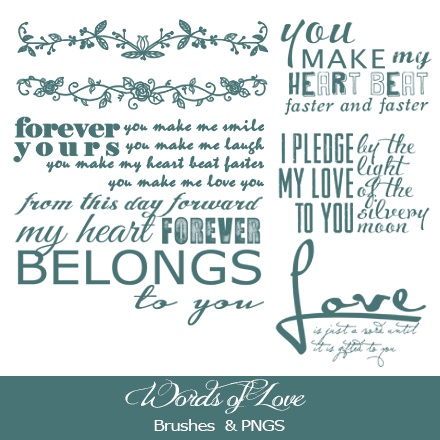 forever
yours
you make me smile
you make me laugh
you make my heart beat faster
you make me love you
from this day forward
my heart FOREVER
BELONGS
to you
you
MAKE my
HEART BEAT
faster and faster
I PLEDGE
MY LOVE
TO YOU
by the
light
of the
silvery
moon
Love
is just a word until
it is gifted to you
Words of Love
Brushes & PNGS